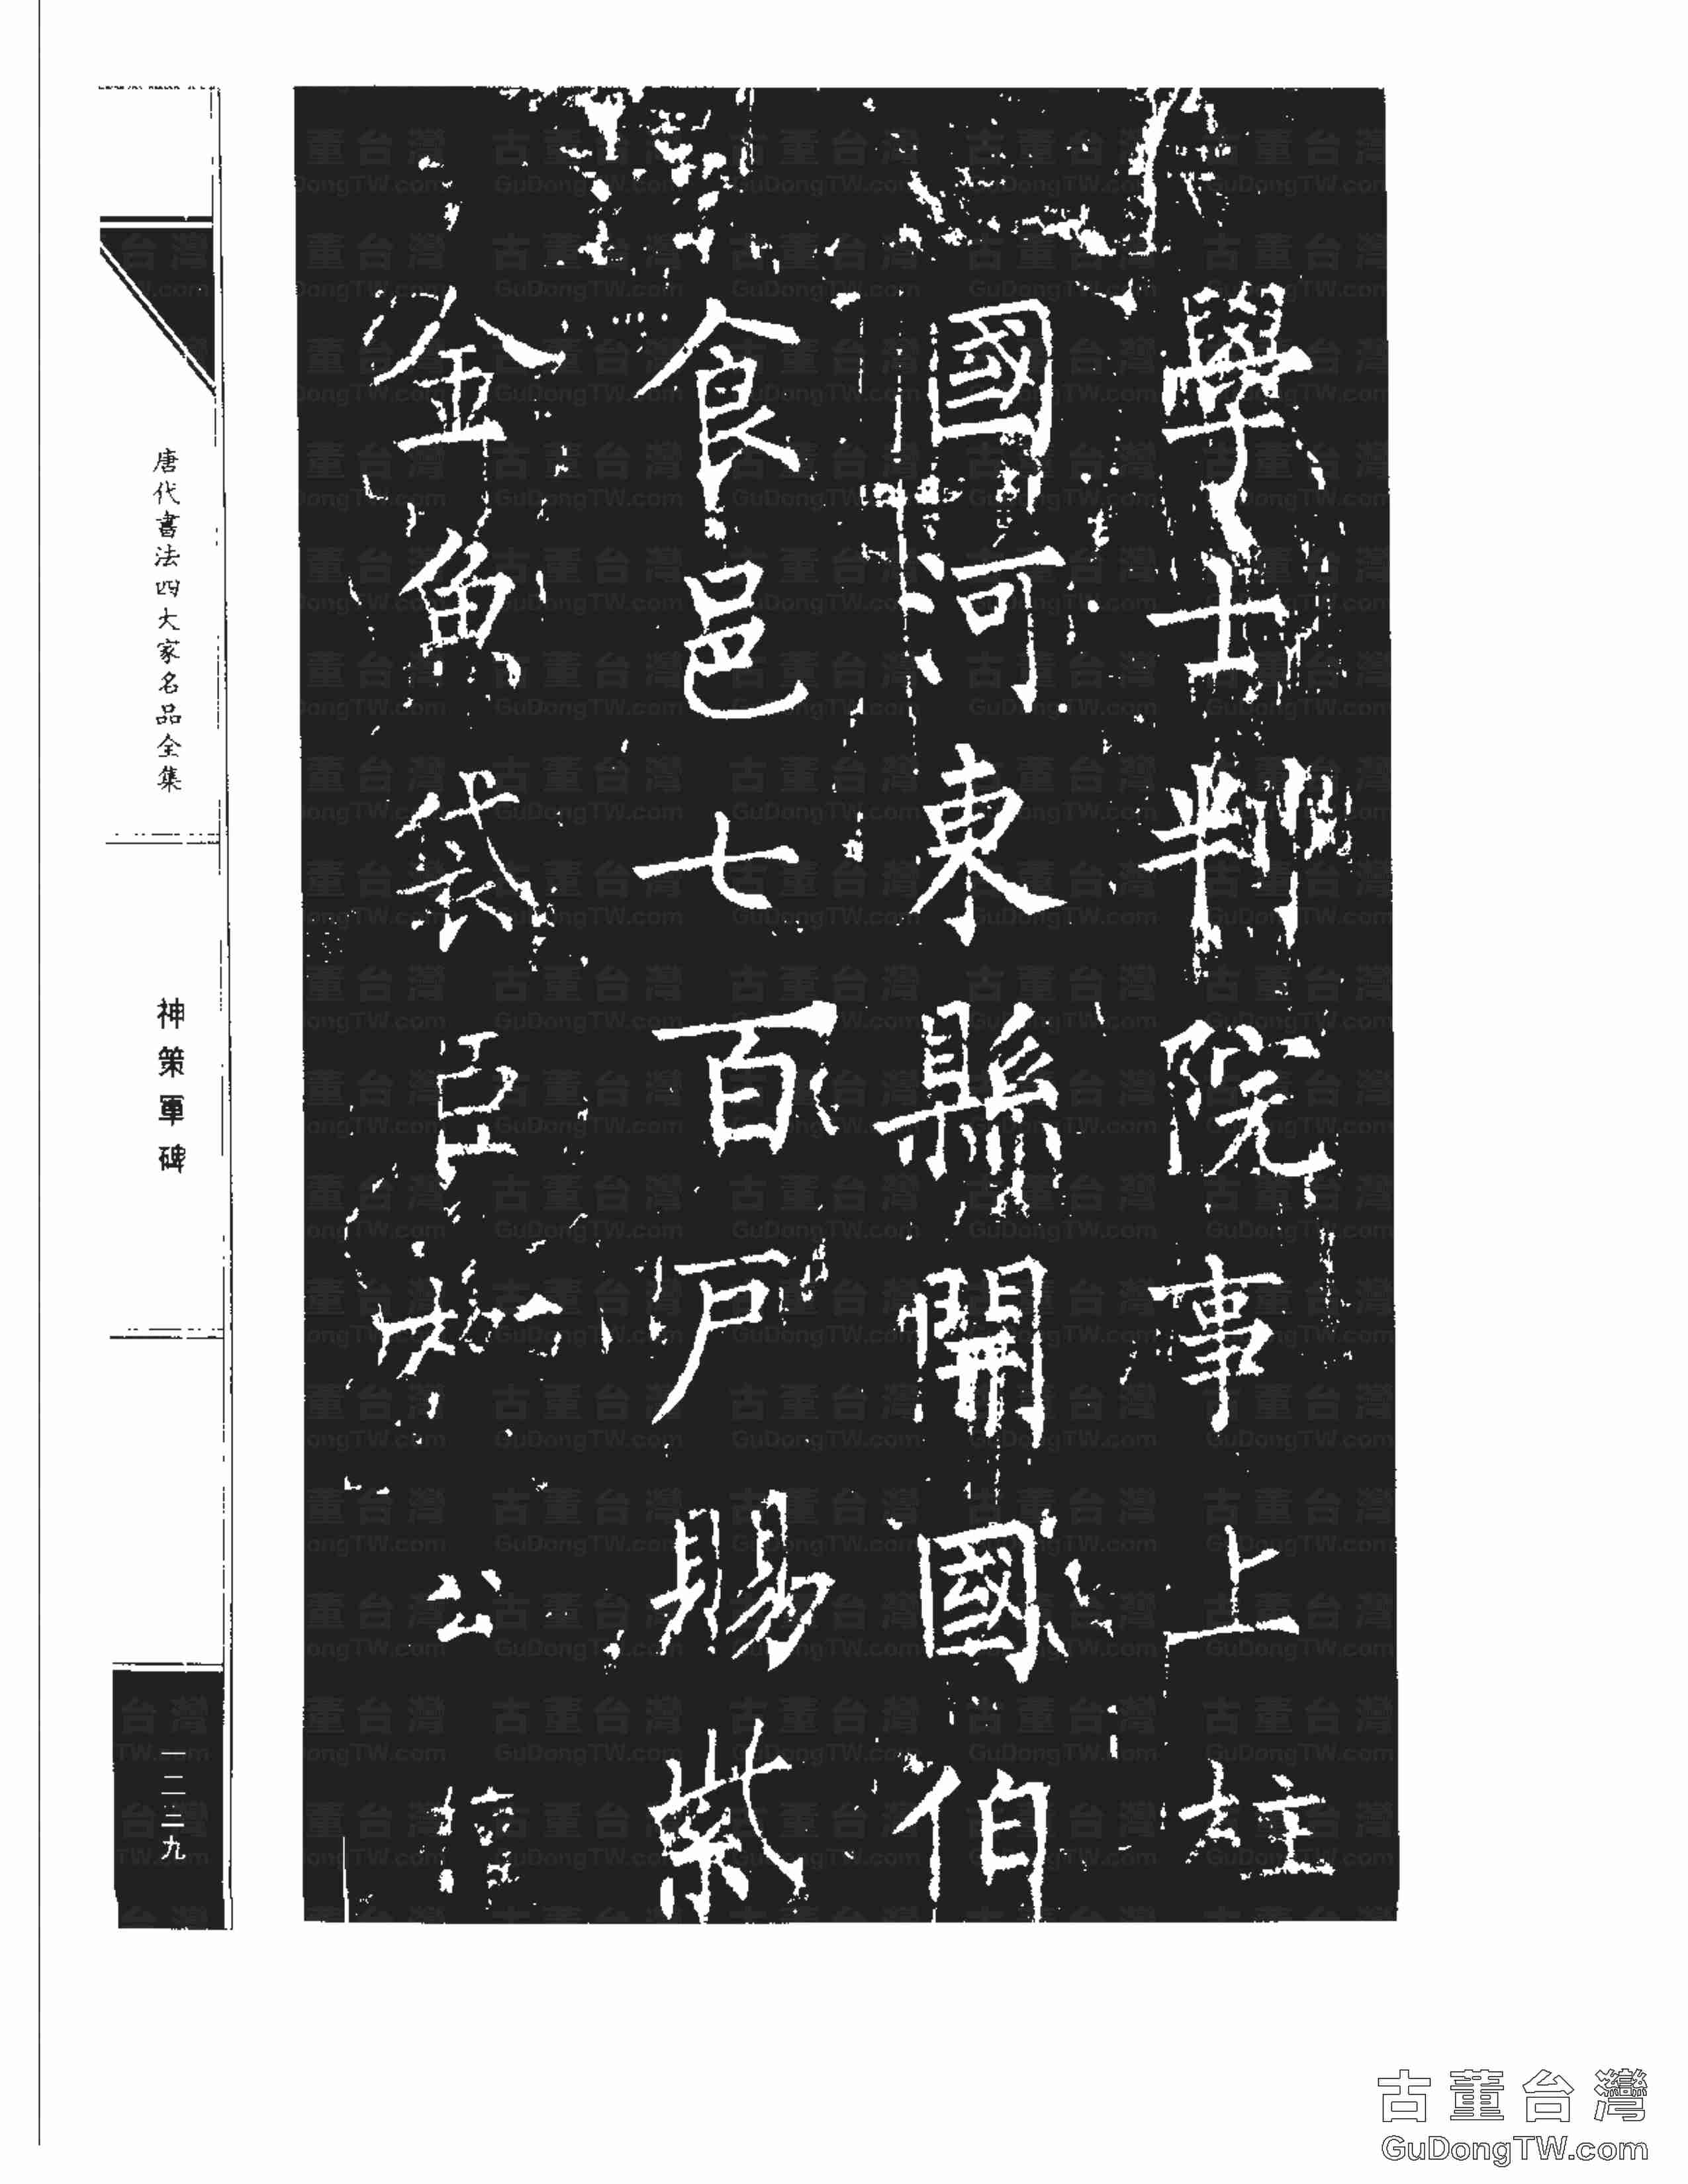 學士判院事上柱
國河東縣開國伯
食邑七百戶賜紫
金魚袋臣柳公權
唐代書法四大家名品全集
神策軍碑
一二三九
古董台灣
GuDongTW.com